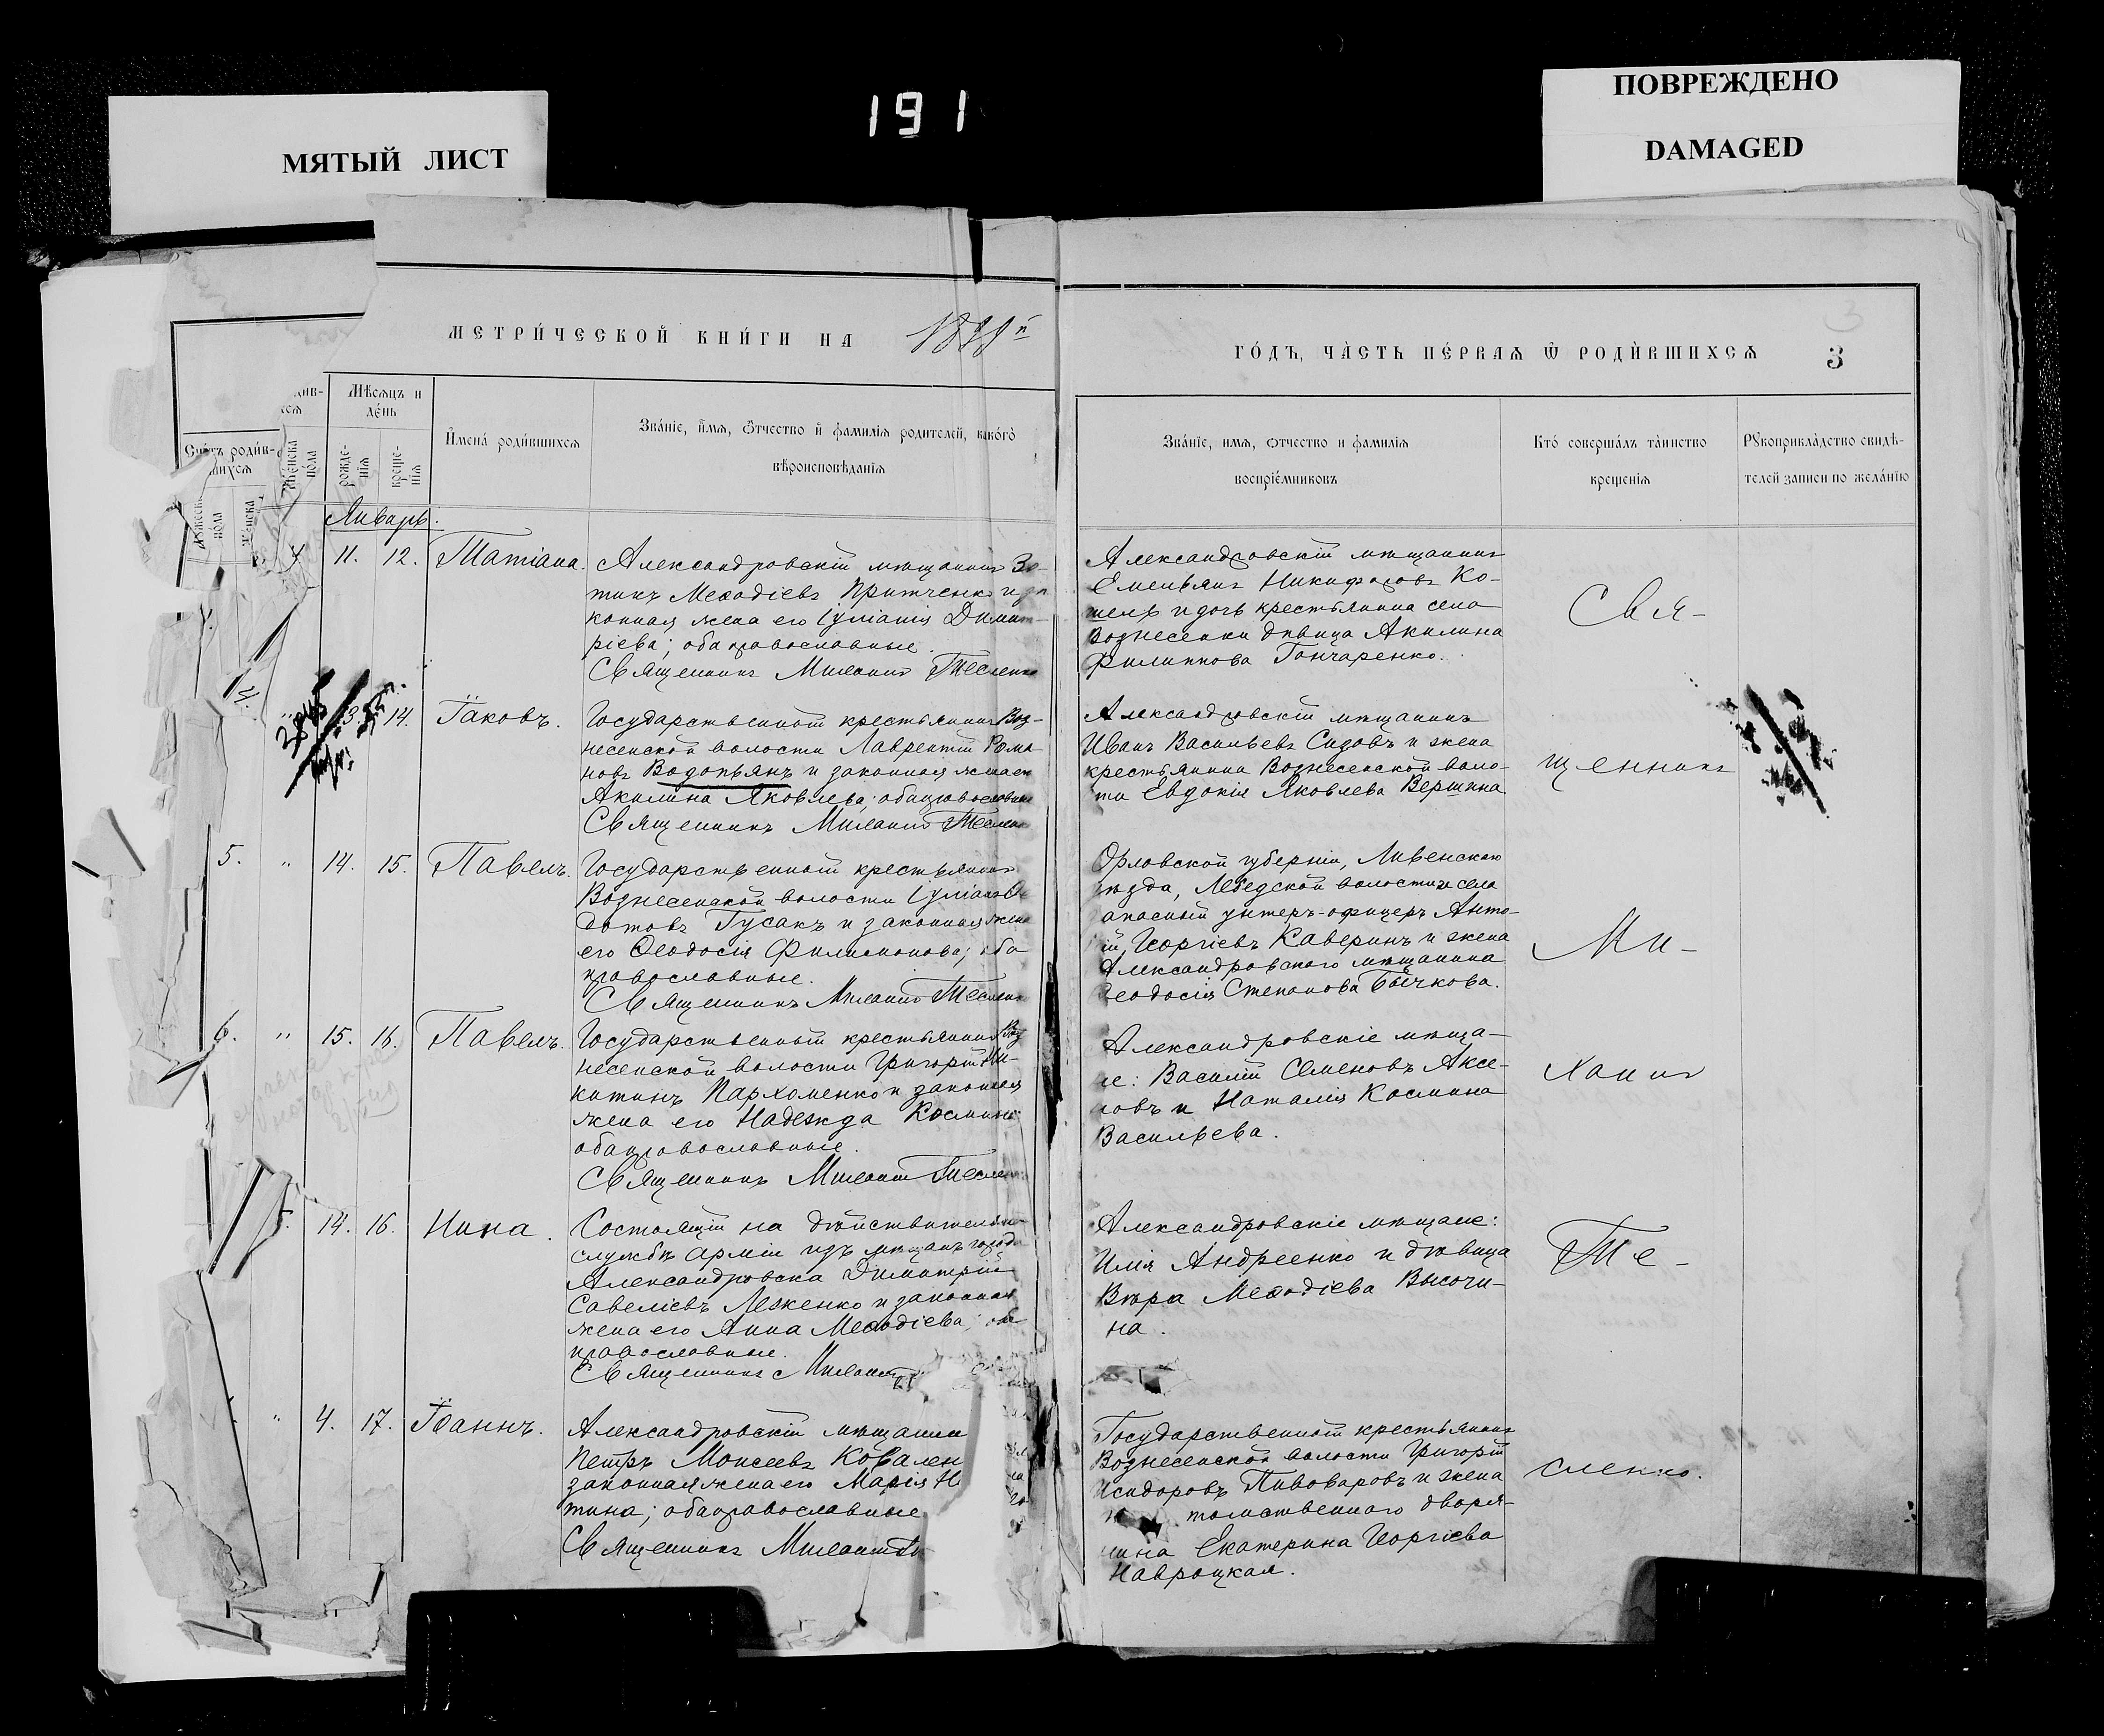 191
МЯТЫЙ ЛИСТ
ПОВРЕЖДЕНО
DAMAGED
МЕТРИ́ЧЕСКОЙ КНИ́ГИ НА
ГО́ДЪ, ЧА̀СТЬ ПЕ́РВАѦ Ѿ РОДЍВШИХСѦ
3
Счетъ роди́в-
шихсѧ
Мѣсѧцъ и
де́нь
рожде-
нїѧ
креще-
нїѧ
Имена́ роди́вшихсѧ
Зва́нїе, и҆́мѧ, ѻ҆́тчество и҆ фамилїѧ родителей, како́гѡ
вѣроисповѣданїѧ
Зва́нїе, имѧ, ѻтчество и фамилїѧ
воспрїе́мниковъ
Кто́ соверша́лъ та̀инство
крещенїѧ
Рꙋкоприкла́дство свидѣ-
телей записи по жела́нїю
Январь.
11. 12. Татіана. Александровскій мѣщанинъ Зо-
тикъ Меѳодіевъ Притченко и за
конная жена его Іуліанія Димит-
ріева; оба православные.
Священникъ Милантій Тесленко
Александровскій мѣщанинъ
Емельянъ Никифоровъ Ко-
тель и дочь крестьянина села
Вознесенки дѣвица Акилина
Филиппова Гончаренко.
Свя-
14. Іаковъ. Государственный крестьянинъ Воз-
несенской волости Лаврентій Рома
новъ Водопьянъ и законная жена его
Акилина Яковлева; оба православные
Священникъ Милантій Тесленко
Александровскій мѣщанинъ
Иванъ Васильевъ Сидовъ и жена
крестьянина Вознесенской воло-
ти Евдокія Яковлева Вершина
щенникъ
5. " 14. 15. Павелъ. Государственный крестьянинъ
Вознесенской волости Іуліанъ
дотовъ Гусакъ и законная жена
его Ѳеодосія Филимонова; оба
православные.
Священникъ Милантій Тесленко
Орловской губерніи, Ливенскаго
ѣзда, волости села
апасный унтеръ-офицеръ Анто-
ій Георгіевъ Каверинъ и жена
Александровского мѣщанина
Ѳеодосія Степанова Бычкова.
Ми-
6. " 15. 16. Павелъ. Государственный крестьянинъ Воз
несенской волости Григорій Ни-
китинъ Пархоменко и законная
жена его Надежда Космина
оба православные.
Священникъ Милантій Тесленко
Александровскіе мѣща-
не: Василій Семеновъ Аксе-
новъ и Наталія Космина
Васильева.
ланій
14. 16. Нина. Состоящій на дѣйствительн
службѣ арміи изъ мѣщанъ города
Александровска Димитрій
Савеліевъ Леженко и законная
жена его Анна Меѳодіева; оба
православные.
Священникъ Милантій
Александровскіе мѣщане:
Илія Андреенко и дѣвица
Вѣра Меѳодіева Высочи-
на.
Те-
" 4. 17. Іоаннъ. Александровскій мѣщанин
Петръ Моисеевъ Ковален
законная жена его Марія Н
тина; оба православные
Священникъ Милантій
Государственный крестьянинъ
Вознесенской волости Григорій
Исидоровъ Пивоваровъ и жена
томственнаго дворя-
нина Екатерина Георгіева
Навроцкая.
сленко.